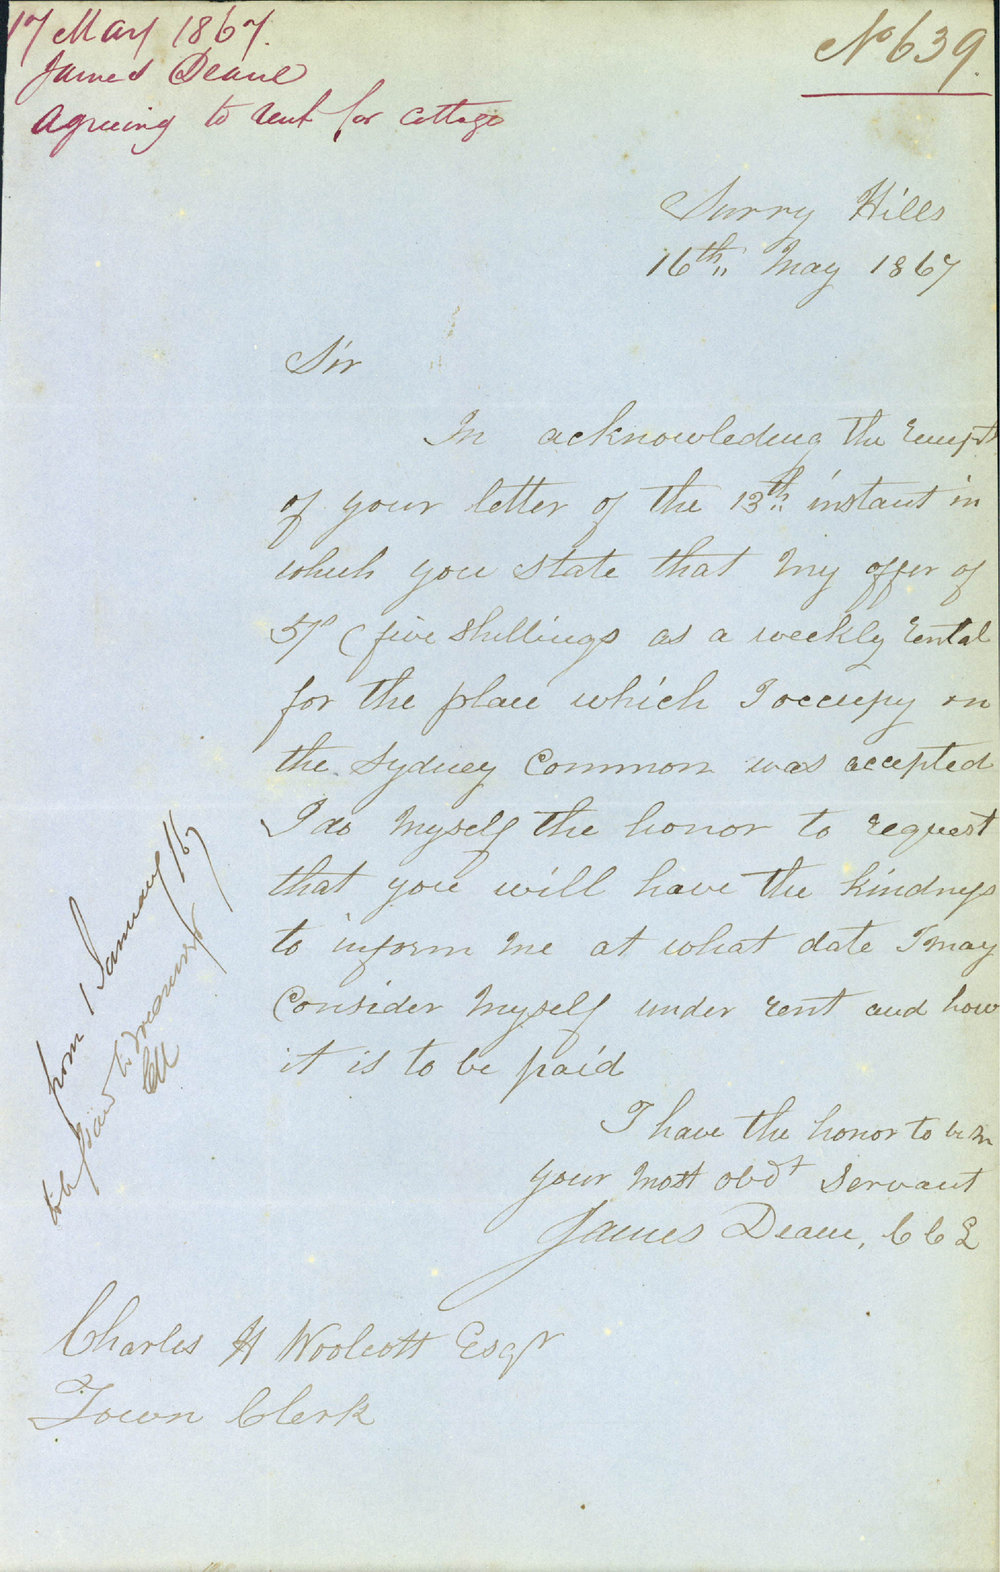 17 May 1867.
James Deane
Agreeing to rent for cottage
No 639.
Surry Hills
16th May 1867
Sir
In acknowledeing the receipt
of your letter of the 13th instant in
which you state that my offer of
5/- (five shillings as a weekly rental
for the place which I occupy on
the Sydney Common was accepted
I do myself the honor to request
that you will have the kindness
to inform me at what date I may
Consider myself under rent and how
it is to be paid
I have the honor to be Sir
your most obdt servant
James Deane, C C E
Charles H Woolcott Esqr
Town Clerk
from 1 January /67
to be paid to
CHW